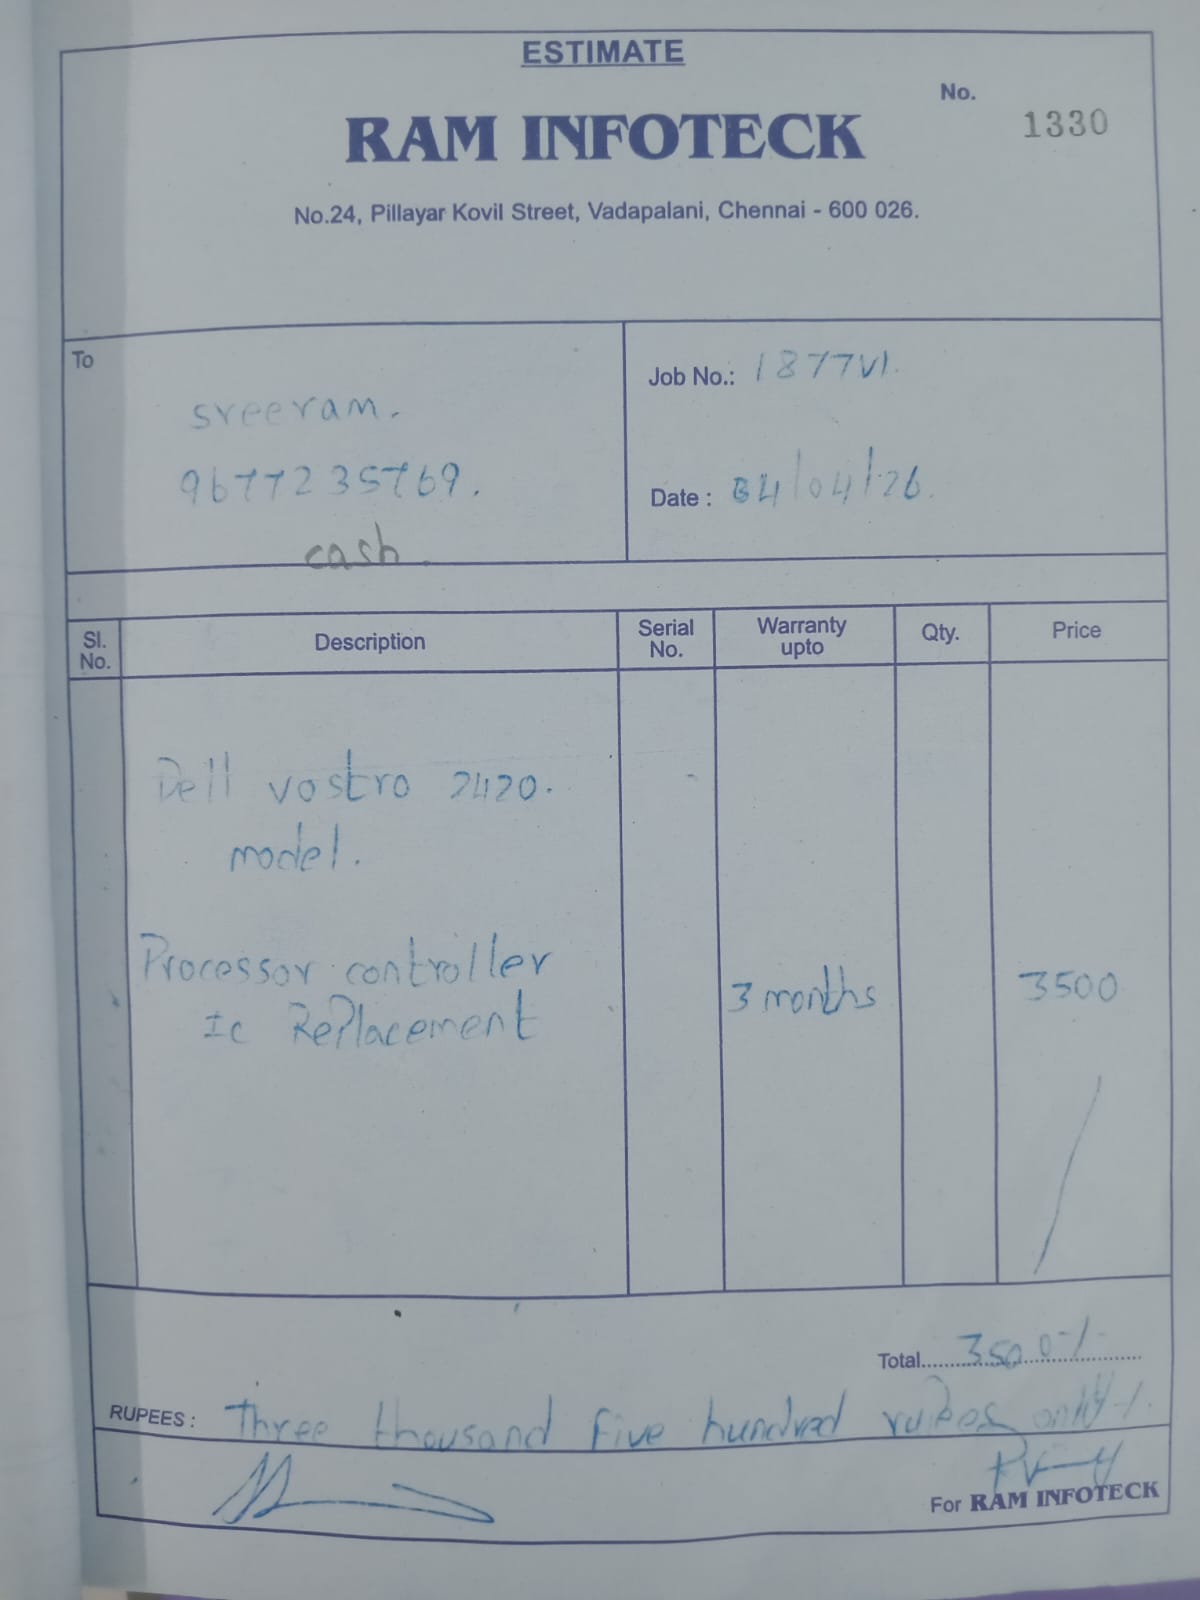 ESTIMATE
No.
1330
RAM INFOTECK
No.24, Pillayar Kovil Street, Vadapalani, Chennai - 600 026.
To
sreeram.
9677235769.
cash.
Job No.: 1877VI.
Date : 04/04/26.
Sl. No. Description Serial No. Warranty upto Qty. Price
Dell vostro 2420.
model.
Processor controller
Ic Replacement
3 months
3500
Total......3500-/-
RUPEES : Three thousand five hundred rupees only/-.
For RAM INFOTECK